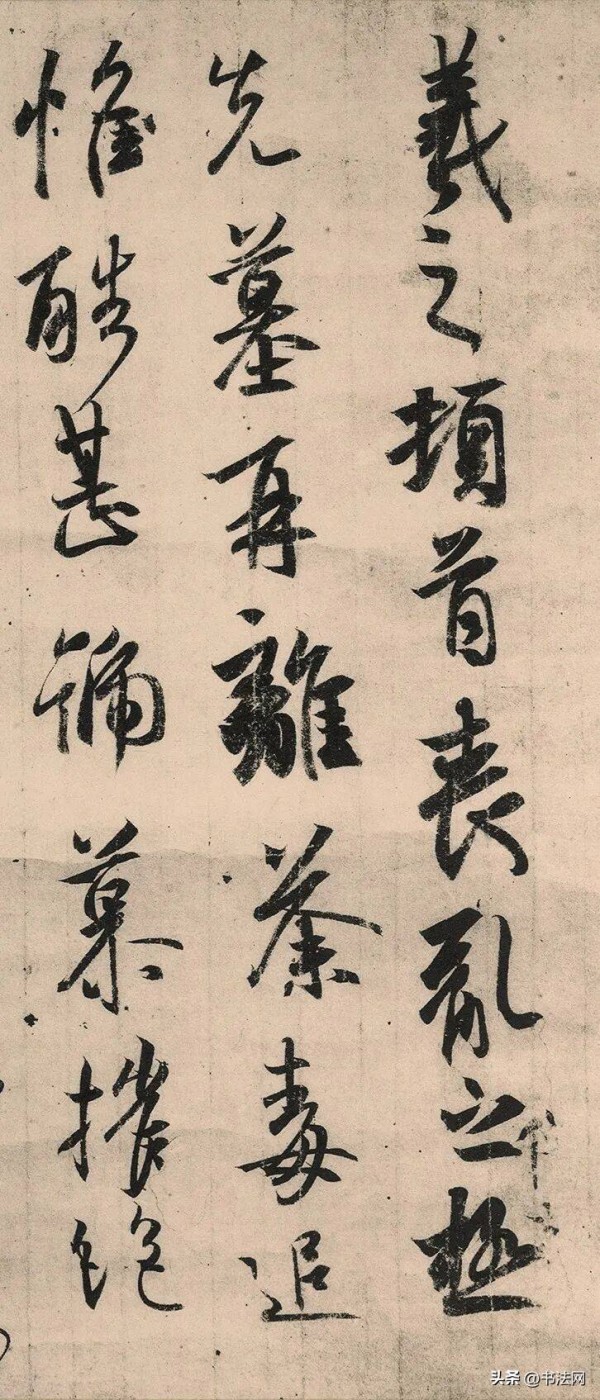 羲之頓首喪亂之極
先墓再離荼毒追
惟酷甚號慕摧絕
头条 @书法网